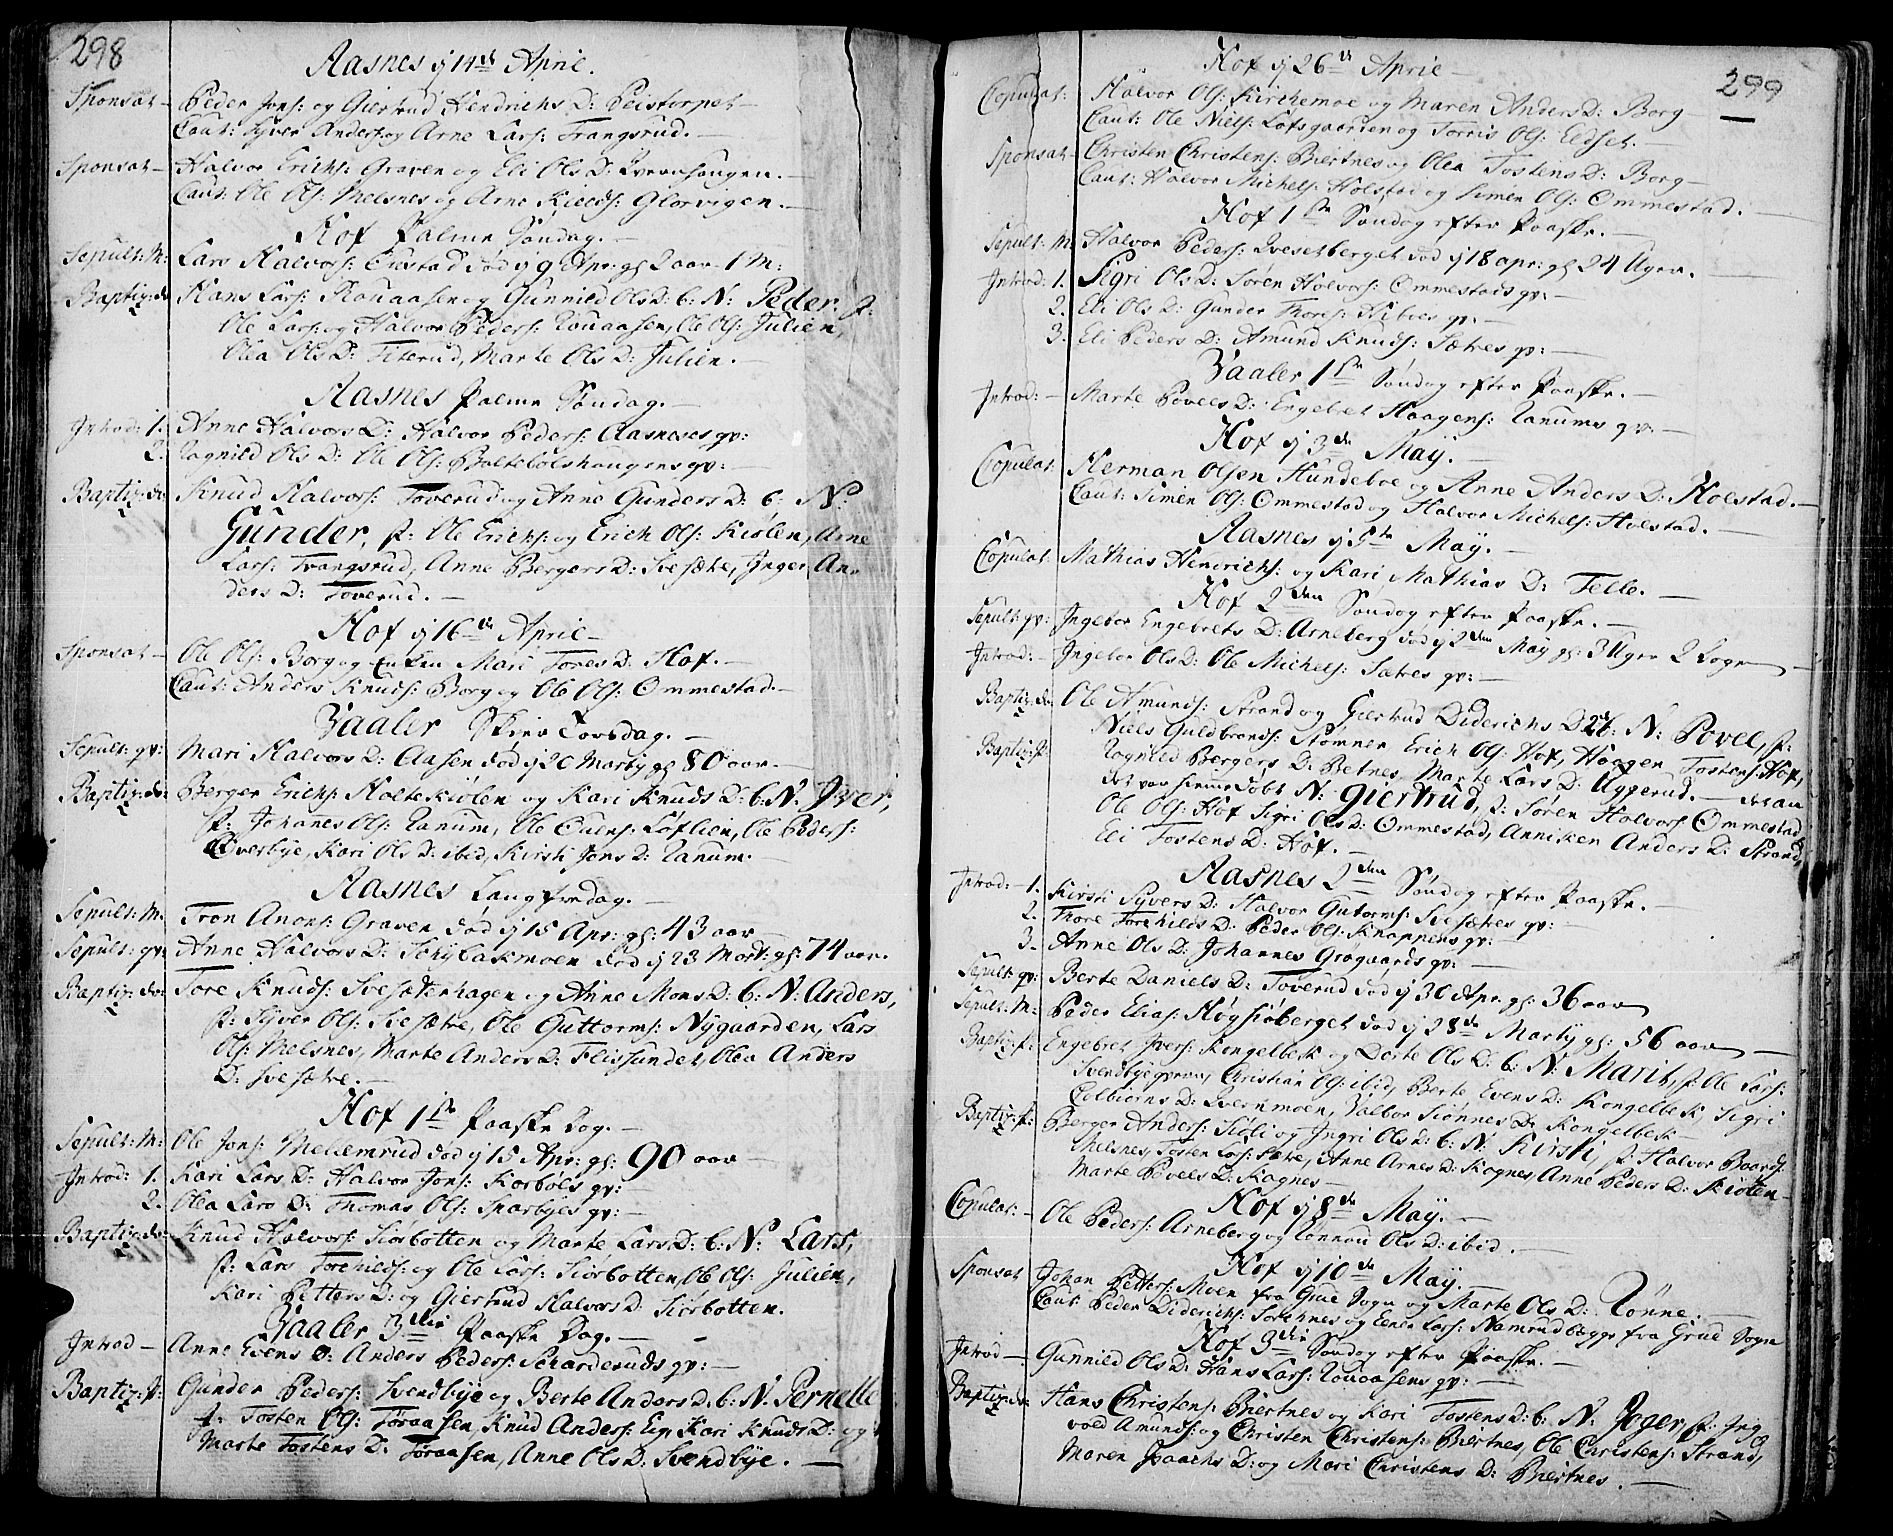 298
Aasnes ij 14de April.
Sponsat - Peder Jons: og Giertrud Hendrichs D: Peistorpet
Caut: Syver Anders: og Arne Lars: Trangsrud.
Sponsat - Halvor Erichs: Graven og Eli Ols D: Qvernhaugen.
Caut: Ole Ols: Melsnes og Arne Kields: Glorvigen.
Hof Palme Søndag.
Sepult: M: Lars Halvors: Enstad død ij 9 Apr: gl 2 aar 1 M:
Baptiz: do Hans Lars: Rouaasen og Gunnild Ols D: b: N: Peder. f:
Ole Lars: og Halvor Peders: Rouaasen, Ole Ols: Julien,
Olea Ols D: Titerud, Marte Ols D: Julien.
Aasnes Palme Søndag.
Introd: 1. Anne Halvors D: Halvor Peders: Aasneses qv:
2. Ragnild Ols D: Ole Ols: Boltebølshaugens qv:
Baptiz: do Knud Halvors: Toverud og Anne Gunders D: b: N:
Gunder, f: Ole Erichs: og Erich Ols: Kiølen, Arne
Lars: Trangsrud, Anne Bergers D: Svesætre, Inger An-
ders D: Toverud.
Hof ij 16de April
Sponsat - Ole Ols: Borg og Enken Mari Tores D: Hof.
Caut: Anders Knuds: Borg og Ole Ols: Ommestad.
Vaaler Skier Torsdag.
Sepult: qv: Mari Halvors D: Aasen død ij 20 Martij gl 80 aar
Baptiz: do: Berger Erichs: Holtekiølen og Kari Knuds D: b: N: Iver,
f: Johanes Ols: Ranum, Ole Ouens: Løflien, Ole Peders:
Overbye, Kari Ols D: ibid, Kirsti Jons D: Ranum.
Aasnes Langfredag.
Sepult: M: Tron Anons: Graven død ij 15 Apr: gl: 43 aar
Sepult: qv: Anne Halvors D: Schybakmoen død ij 23 Mart: gl: 74 aar.
Baptiz: do: Tore Knuds: Svesæterhagen og Anne Mons D: b: N: Anders,
f: Syver Ols: Svesætre, Ole Guttorms: Nygaarden, Lars
Ols: Melsnes, Marte Anders D: Flissundet, Olea Anders
D: Svesætre.
Hof 1ste Paaske Dag.
Sepult: M: Ole Jons: Mellemrud død ij 15 Apr: gl: 90 aar
Introd: 1. Kari Lars D: Halvor Jons: Korbøls qv:
2. Olea Lars D: Thomas Ols: Sparbyes qv:
Baptiz: do: Knud Halvors: Siørbotten og Marte Lars D: b: N: Lars,
f: Lars Torchilds: og Ole Lars: Siørbotten, Ole Ols: Julien,
Kari Petters D: og Giertrud Halvors D: Siørbotten.
Vaaler 3die Paaske Dag.
Introd - Anne Evens D: Anders Peders: Scharderuds qv:
Baptiz: f: Gunder Peders: Svendbye og Berte Anders D: b: N: Pernelle
f: Tosten Ols: Toraasen, Knud Anders: Eig, Kari Knuds D: og
Marte Tostens D: Toraasen, Anne Ols D: Svendbye.
299
Hof ij 26de April
Copulat: Halvor Ols: Kirchemoe og Maren Anders D: Borg
Caut: Ole Niels: Lotsgaarden og Torris Ols: Eedset.
Sponsat - Christen Christens: Biertnes og Olea Tostens D: Borg
Caut: Halvor Michels: Holstad og Simen Ols: Ommestad.
Hof 1ste Søndag efter Paaske.
Sepult: M: Halvor Peders: Svesetberget død ij 18 apr: gl 24 Uger.
Introd: 1. Sigri Ols D: Søren Halvors: Ommestads qv:
2. Eli Ols D: Gunder Thores: Kilens qv:
3. Eli Peders D: Amund Knuds: Sætres qv:
Vaaler 1ste Søndag efter Paaske.
Introd: - Marte Povels D: Engebret Haagens: Ranums qv:
Hof ij 3de Maij.
Copulat: Herman Olsen Hundeboe og Anne Anders D: Holstad.
Caut: Simen Ols: Ommestad og Halvor Michels: Holstad.
Aasnes ij 5te Maij.
Copulat Mathias Hindrichs: og Kari Mathias D: Telle.
Hof 2den Søndag efter Paaske.
Sepult: qv: Ingebor Engebrets D: Arneberg død ij 2den Maij gl: 3 Uger 2 Dage
Introd: - Ingebor Ols D: Ole Michels: Sætres qv:
Baptiz: do Ole Amunds: Strand og Giertrud Diderichs D: 2 b: N: Povel, f:
Niels Guldbrands: Stømner Erich Ols: Hof, Haagen Tostens: Hof,
Baptiz: f: Ragnild Bergers D: Betnes, Marte Lars D: Uggerud. det an
det var hiemedøbt N: Giertrud, f: Søren Halvors: Ommestad
Ole Ols: Hof Sigri Ols D: Ommestad, Anniken Anders D: Strand,
Eli Tostens D: Hof.
Aasnes 2den Søndag efter Paaske.
Introd: - 1. Kirsti Syvers D: Halvor Gutorms: Svesætres qv:
2. Thore Torchilds D: Peder Ols: Knappens qv:
3. Anne Ols D: Johannes Grøgaards qv:
Sepult: qv: Berte Daniels D: Toverud død ij 30 Apr: gl: 36 aar
Sepult: M: Peder Elias: Høgsiøberget død ij 28de Martij gl: 56 aar
Baptiz: f: Engebret Ivers: Kongelbek og Dorte Ols D: b: N: Marit, f: Ole Lars:
Svendbye, Christian Ols: ibid, Berte Evens D: Kongelbek Sigri
Colbiørns D: Qvernmoen, Valbor Siønnes D: Kongelbek
Baptiz: f: Berger Anders: Sisli og Ingri Ols D: b: N: Kirsti, f: Halvor Baards:
Melsnes, Tosten Lars: Sætre, Anne Arnes D: Kagnes, Anne Peders D: Kiølen
Marte Povels D: Kagnes
Hof ij 8de Maij.
Copulat: - Ole Peders: Arneberg og Rønnou Ols D: ibid.
Hof ij 10de Maij.
Sponsat Johan Petters: Moen fra Grue Sogn og Marte Ols D: Rønne.
Caut: Peder Diderichs: Sorknes og Einer Lars: Namrud begge fra Grue Sogn
Hof 3die Søndag efter Paaske.
Introd - Gunnild Ols D: Hans Lars: Rouaasens qv:
Baptiz: do: Hans Christens: Biertnes og Kari Tostens D: b: N: Joger, f: Ing
vold Amunds: og Christen Christens: Biertnes, Ole Christens: Strand,
Maren Isaachs D: og Mari Christens D: Biertnes.